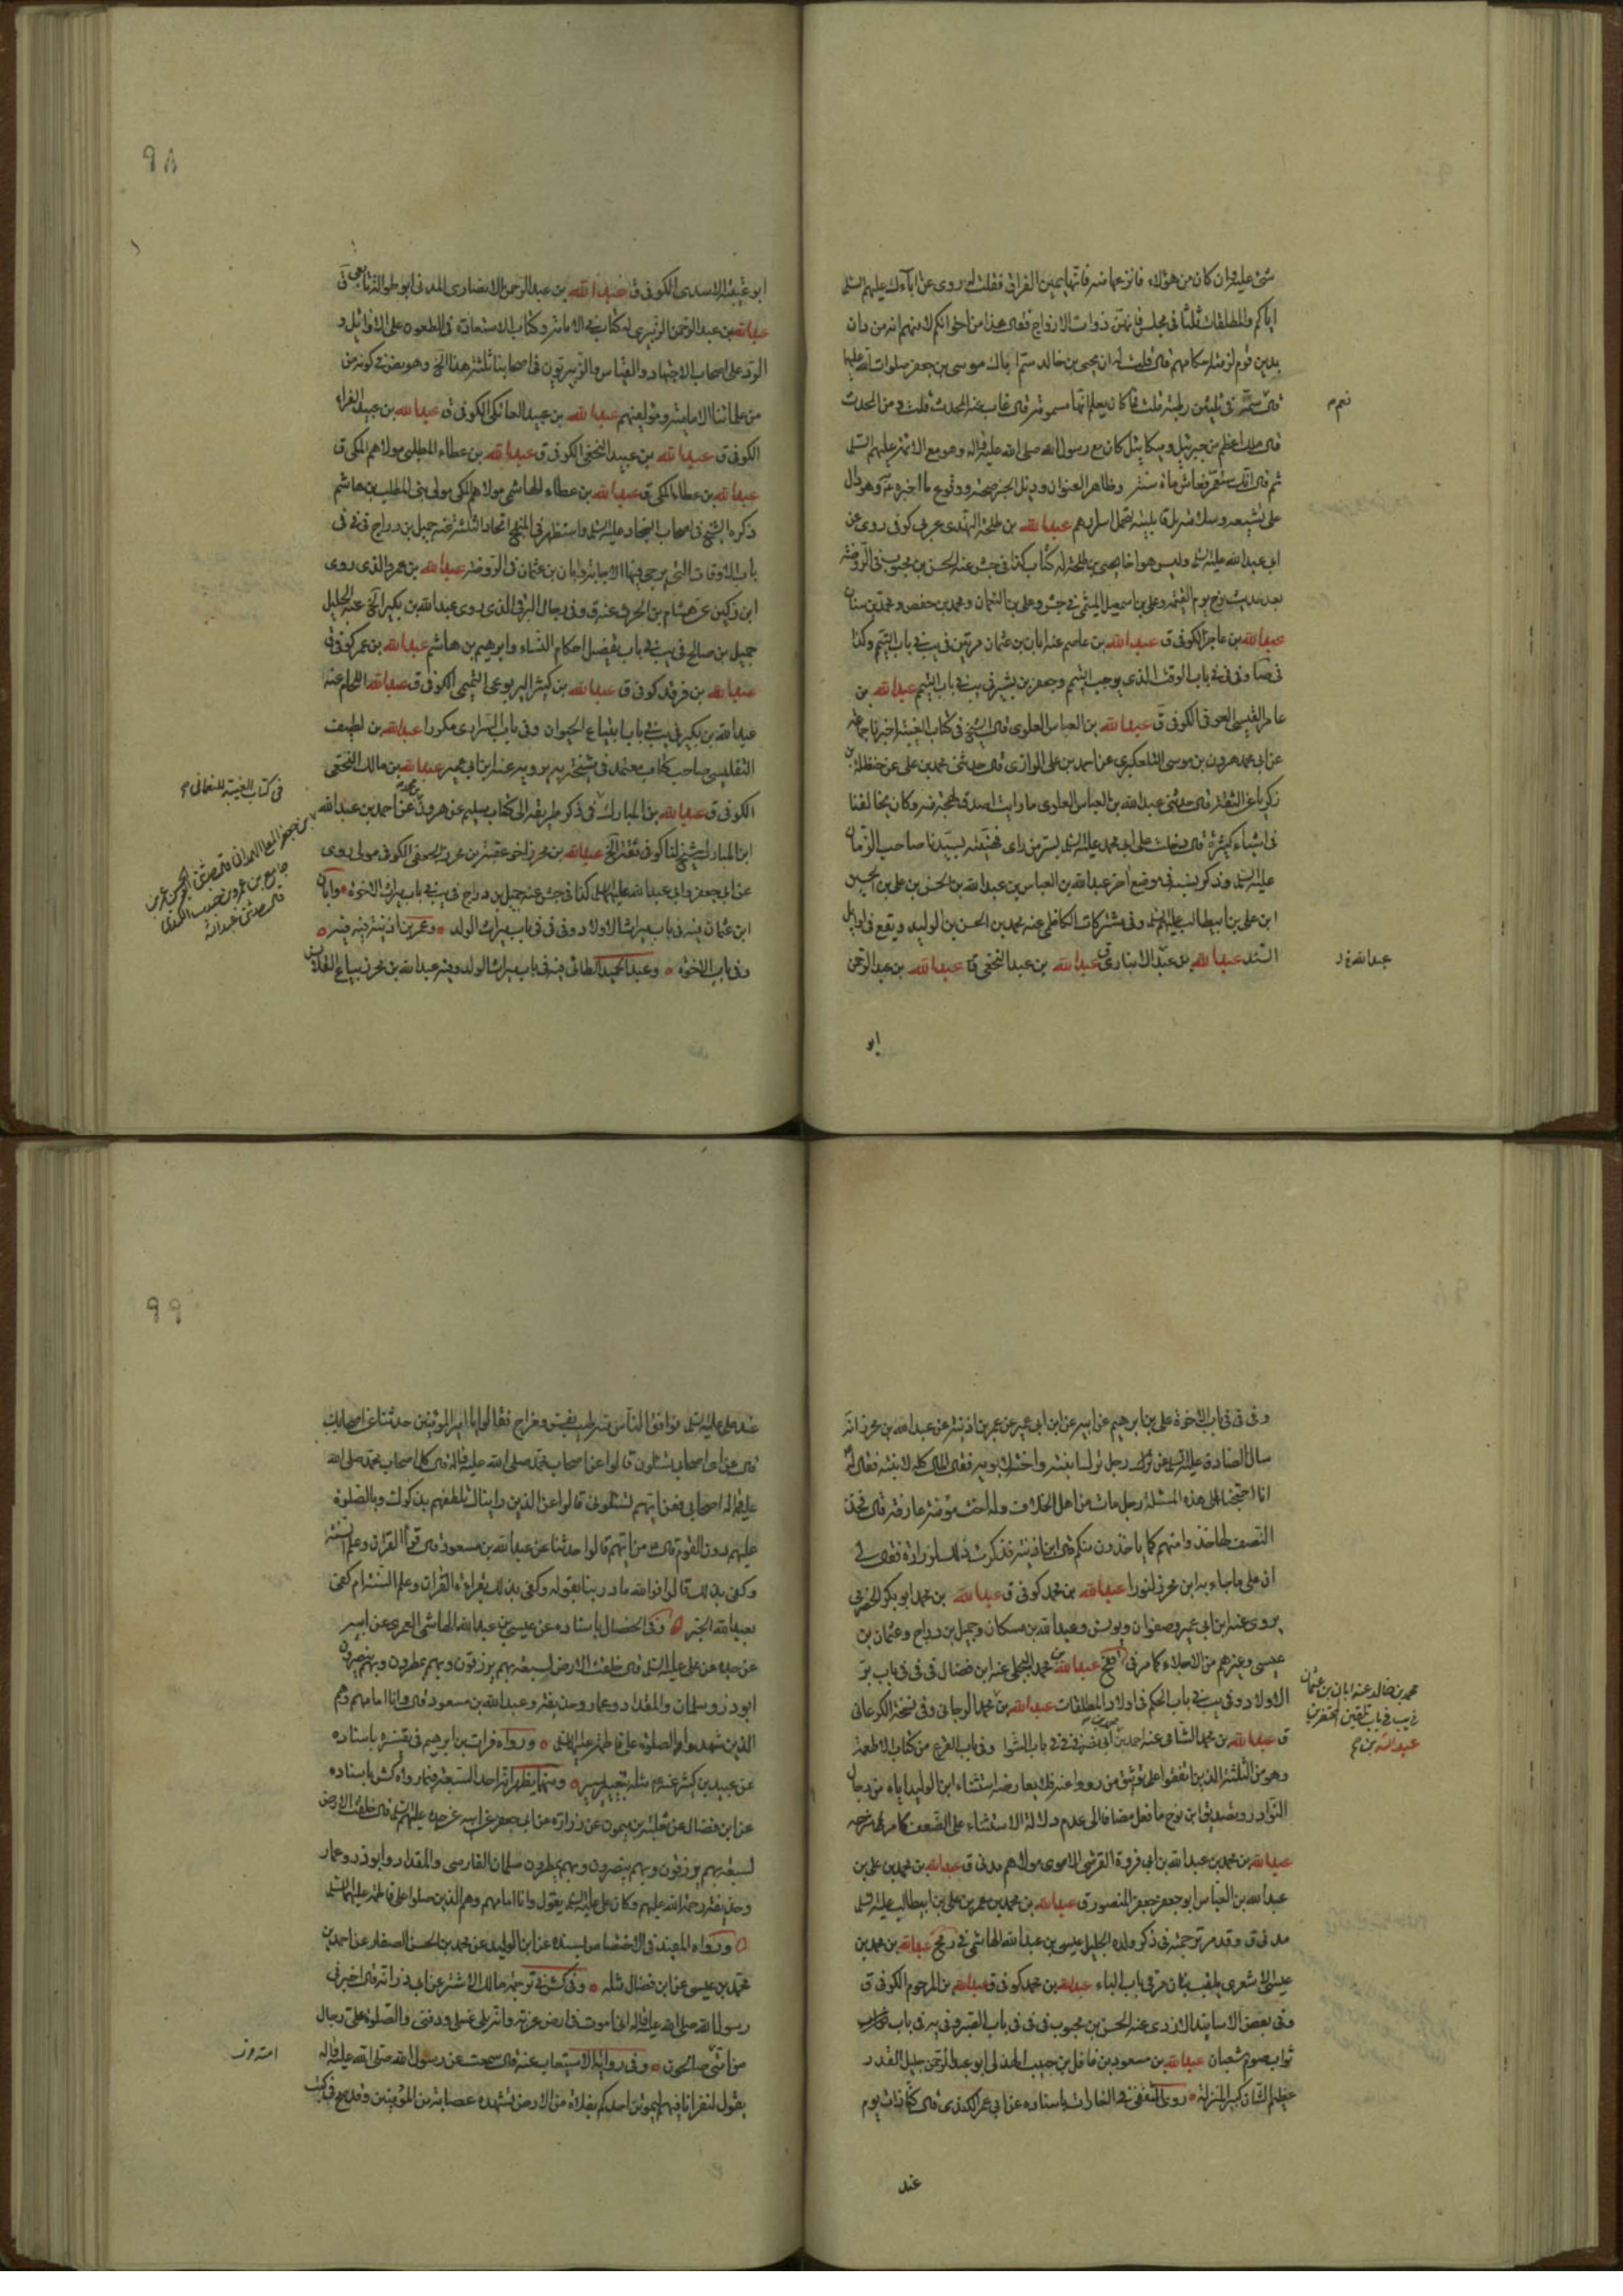 شئ عليه وان كان من هؤلاء فابنها منه فانه انما يمين الفراق فقلت له روى عن ابائك عليهم السلم
اياكم والمطلقات ثلثا في مجلس فانهن ذوات الازواج فقال هذا من اخوانكم لا منهم انه من دان
بدين قوم لزمته احكامهم قال قلت له ان يحيى بن خالد سم اباك موسى بن جعفر صلوات الله عليهما
قال سمه في ثلثين رطبة قلت فما كان يعلم انها مسمومة قال غاب عنه المحدث قلت ومن المحدث
قال ملك اعظم من جبرئيل وميكائيل كان مع رسول الله صلى الله عليه واله وهو مع الائمة عليهم السلم
نعم م
ثم قال انك ستعمر فعاش مائة سنة وظاهر العنوان وذيل الخبر صحته ووقوع ما اخبره به وهو دال
على تشيعه وسلامته بل قابليته لتحمل اسرارهم عبد الله بن طلحة النهدى عربى كوفى روى عن
ابى عبد الله عليه السلم وليس هو اخا يحيى بن طلحة له كتاب كذا في جش عنه الحسن بن محبوب في الروضة
بعد حديث نوح يوم القيمة وعلى بن اسمعيل الميثمى في جش وعلى بن النعمان ومحمد بن حفص ومحمد بن سنان
عبد الله بن عاجز الكوفى ق عبد الله بن عاصم عنه ابان بن عثمان مرتين في يب في باب التيمم وكذا
في صا وفى في باب الوقت الذى يوجب التيمم وجعفر بن بشير في يب في باب التيمم عبد الله بن
عامر القيسى العوفى الكوفى ق عبد الله بن العباس العلوى قال الشيخ في كتاب الغيبة اخبرنا جماعة
عن ابى محمد هرون بن موسى التلعكبرى عن احمد بن على الرازى قال حدثنى محمد بن على عن حنظلة بن
زكريا عن الثقة قال حدثنى عبد الله بن العباس العلوى وما رايت اصدق لهجة منه وكان يخالفنا
في اشياء كثيرة قال دخلت على ابى محمد عليه السلم بسر من راى فهنيته بسيدنا صاحب الزمان
عليه السلم وذكر نسبه في موضع اخر عبد الله بن العباس بن عبد الله بن الحسن بن على بن الحسين
ابن على بن ابيطالب عليهم السلم وفى مشتركات الكاظمى عنه محمد بن الحسن بن الوليد ويقع في اوايل
السند عبد الله بن عبد الانبارى عبد الله بن عبد النخعى ق عبد الله بن عبد الرحمن
ابو
٩٨
ابو عتيبة الاسدى الكوفى ق عبد الله بن عبد الرحمن الانصارى المدنى ابو طوالة تابعى ق
عبد الله بن عبد الرحمن الزبيرى له كتاب في الامامة وكتاب الاستفادة في الطعون على الاوائل و
الرد على اصحاب الاجتهاد والقياس والزبيريون في اصحابنا ثلثة هذا الخ وهو يقضى كونه من
من علمائنا الامامية ومؤلفيهم عبد الله بن عبيد العائكى الكوفى ق عبد الله بن عبيد الفراء
الكوفى ق عبد الله بن عبيد النخعى الكوفى ق عبد الله بن عطاء المطلبى مولاهم المكى ق
عبد الله بن عطاء المكى ق عبد الله بن عطاء الهاشمى مولاهم المكى مولى بنى المطلب بن هاشم
ذكره الشيخ في اصحاب السجاد عليه السلم واستظهر في المنهج اتحاد الثلثة عنه جميل بن دراج في في
باب الاوقات التى يرجى فيها الاجابة وابان بن عثمان في الروضة عبد الله بن عمرو الذى روى
ابن زكين عن هشام بن الحرث عنه ق وفى رجال البرقى الذى روى عبد الله بن بكير الخ عنه الجليل
جميل بن صالح في يب في باب تفصيل احكام النساء وابراهيم بن هاشم عبد الله بن عمر كوفى ق
عبد الله بن فرقد كوفى ق عبد الله بن كثير اليربوعى التميمى الكوفى ق عبد الله اللحام عنه
عبد الله بن بكير في يب في باب ابتياع الحيوان وفى باب السرارى مكررا عبد الله بن لطيف
التفليسى صاحب كتاب معتمد في مشيخة يه يرويه عنه ابن ابى عمير عبد الله بن مالك النخعى
الكوفى ق عبد الله بن المبارك في ذكر طريقه الى كتاب سليم عن هرون بن محمد عن احمد بن عبد الله
في كتاب الغيبة للنعمانى م
ابن المبارك شيخ لنا كوفى ثقة الخ عبد الله بن محرز اخو عقبة بن محرز الجعفى الكوفى مولى روى
عن ابى جعفر وابى عبد الله عليهما السلم كذا في جش عنه جميل بن دراج في يب في باب ميراث الاخوة وابان
ابن عثمان فيه في باب ميراث الاولاد وفى في في باب ميراث الولد وعمر بن اذينة فيه فيه
وفى باب الاخوة وعبد الحميد الطائى فيه في باب ميراث الولد وفيه عبد الله بن محرز بياع القلانس
وفى في في باب الاخوة على بن ابرهيم عن ابيه عن ابن ابى عمير عن عمر بن اذينة عن عبد الله بن محرز انه
سال الصادق عليه السلم عن ترك رجل ترك ابنته واخته لابويه فقال المال كله لابنته فقال له
انا احتجنا الى هذه المسئلة رجل مات من اهل الخلاف وله اخت مؤمنة عارفة قال فخذ
النصف لها خذوا منهم كما ياخذون منكم قال ابن اذينة فذكرت ذلك لزرارة فقال لى
ان على ما جاء به ابن محرز لنورا عبد الله بن محمد كوفى ق عبد الله بن محمد ابو بكر الحضرمى
يروى عنه ابن ابى عمير وصفوان ويونس وعبد الله بن مسكان وجميل بن دراج وعثمان بن
عيسى وغيرهم من الاجلاء كما مر في عبد الله بن محمد البجلى عنه ابن فضال في في في باب بر
الاولاد وفى يب في باب الحكم في اولاد المطلقات عبد الله بن محمد الرجانى وفى نسخة الكرمانى
محمد بن خالد عنه ابان بن عثمان
في يب في باب تلقين المحتضرين
عبد الله بن محمد
ق عبد الله بن محمد الشامى عنه احمد بن ابى نصر في في في باب الشوا وفى باب القرع من كتاب الاطعمة
وهو من الثلثة الذين اتفقوا على توثيق من رووا عنه فلا يعارضه استثناء ابن الوليد اياه من رجال
النوادر وتصديق ابن نوح ما فعل مضافا الى عدم دلالة الاستثناء على الضعف كما مر
عبد الله بن محمد بن عبد الله بن ابى فروة القرشى الاموى مولاهم مدنى ق عبد الله بن محمد بن على بن
عبد الله بن العباس ابو جعفر المنصور ق عبد الله بن محمد بن عمر بن على بن ابيطالب عليه السلم
مدنى ق وقد مر ترجمته في ذكر ولده الجليل عيسى بن عبد الله الهاشمى في عبد الله بن محمد بن
عيسى الاشعرى يلقب ببنان مر في باب الباء عبد الله بن محمد كوفى ق عبد الله بن المرحوم الكوفى ق
وفى بعض الاسانيد الازدى عنه الحسن بن محبوب في في في باب القبر وفى يه في باب ثواب
ثواب صوم شعبان عبد الله بن مسعود بن غافل بن حبيب الهذلى ابو عبد الرحمن جليل القدر
عظيم الشان كبير المنزلة روى الثقفى في الغارات باسناده عن ابى عمر الكندى قال كنا ذات يوم
عند
٩٩
عند على عليه السلم فوافق الناس منه طيب نفس ومزاح فقالوا يا امير المؤمنين حدثنا عن اصحابك
قال عن اى اصحابى تسئلون قالوا عن اصحاب محمد صلى الله عليه واله قال كل اصحاب محمد صلى الله
عليه واله اصحابى فعن ايهم تسئلونى قالوا عن الذين رايناك تلطفهم بذكرك وبالصلوة
عليهم دون القوم قال عن ايهم قالوا حدثنا عن عبد الله بن مسعود قال قرأ القران وعلم السنة
وكفى بذلك قالوا فوالله ما درينا بقوله وكفى بذلك بقراءة القران وعلم السنة ام كفى
بعبد الله الخبر وفى الخصال باسناده عن عيسى بن عبد الله الهاشمى العمرى عن ابيه
عن جده عن على عليه السلم قال خلقت الارض لسبعة بهم يرزقون وبهم يمطرون وبهم ينصرون
ابوذر وسلمان والمقداد وعمار وحذيفة وعبد الله بن مسعود قال وانا امامهم وهم
الذين شهدوا الصلوة على فاطمة عليها السلم ورواه فرات بن ابرهيم في تفسيره باسناده
عن عبيد بن كثير عنه م مثله بتغيير يسير ومنها يظهر انه احد السبعة فيما رواه كش باسناده
عن ابن فضال عن ثعلبة بن ميمون عن زرارة عن ابى جعفر عن ابيه عن جده عليهم السلم قال خلقت الارض
لسبعة بهم يرزقون وبهم ينصرون وبهم يمطرون سلمان الفارسى والمقداد وابوذر وعمار
وحذيفة رحمة الله عليهم وكان على عليه السلم يقول وانا امامهم وهم الذين صلوا على فاطمة عليها السلم
ورواه المفيد في الاختصاص بسنده عن ابن الوليد عن محمد بن الحسن الصفار عن احمد بن
محمد بن عيسى عن ابن فضال مثله وفى كش في ترجمة مالك الاشتر عن ابى ذر انه قال اخبرنى
رسول الله صلى الله عليه واله انى اموت في ارض غربة وانه يلى غسلى ودفنى والصلوة على رجال
من امتى صالحون وفى رواية الاستيعاب عنه قال سمعت عن رسول الله صلى الله عليه واله
يقول لنفر انا فيهم ليموتن احدكم بفلاة من الارض تشهده عصابة من المؤمنين وقد صح في كتب